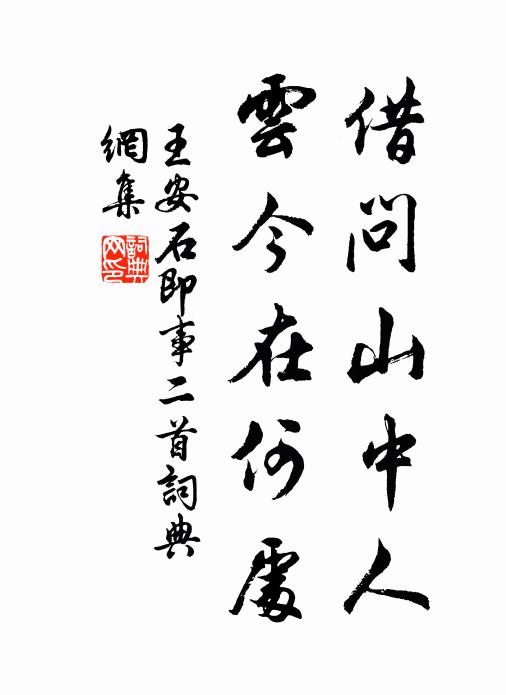 借問山中人
雲今在何處
王安石即事二首詞典
網集
詞典網印